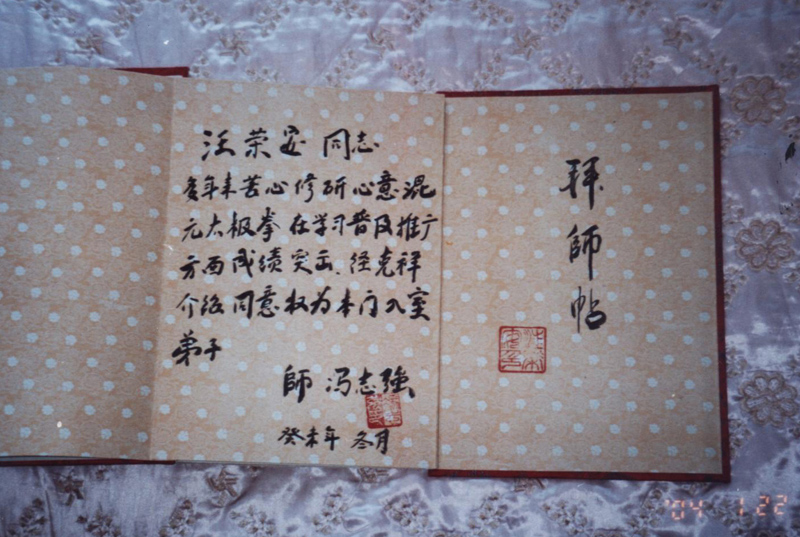 汪荣安 同志
多年来苦心修研心意混
元太极拳 在学习普及推广
方面成绩突出、经克祥
介绍 同意收为本门入室
弟子
師 冯志強
癸未年 冬月
拜師帖
'04 1 22